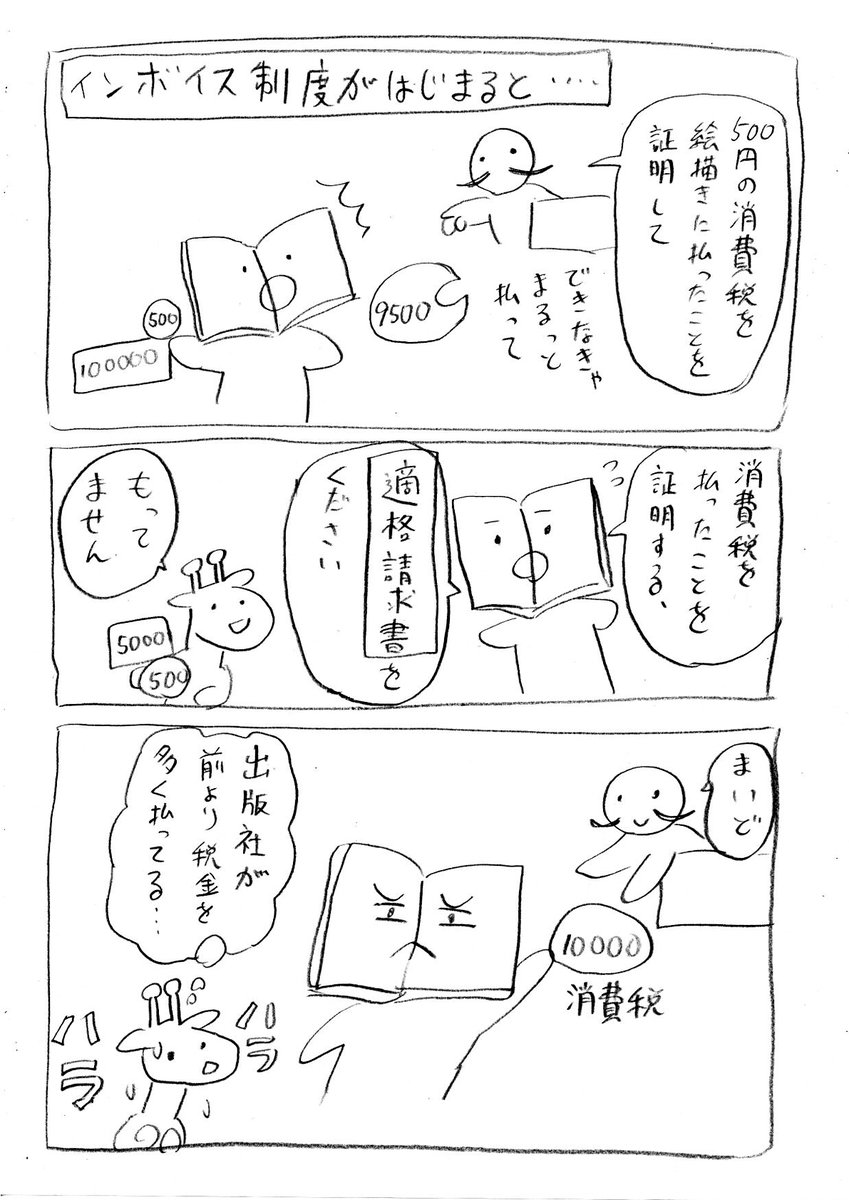 インボイス制度がはじまると‥‥
500円の消費税を
絵描きに払ったことを
証明して
できなきゃ
まるっと
払って
9500
500
100000
消費税を
払ったことを
証明する、
適格請求書を
ください
もって
ません
5000
500
まいど
10000
消費税
出版社が
前より税金を
多く払ってる…
ハラ
ハラ